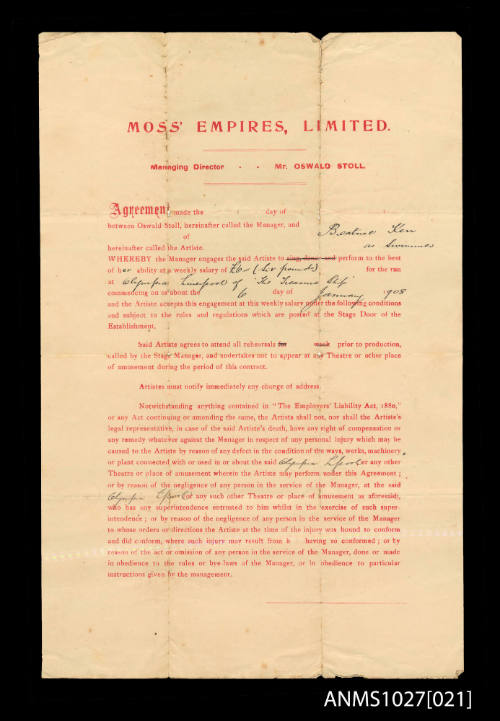 MOSS' EMPIRES, LIMITED.
Managing Director - - Mr. OSWALD STOLL.
Agreement made the day of
between Oswald Stoll, hereinafter called the Manager, and
of Beatrice Kerr
hereinafter called the Artiste. as Swimmer
WHEREBY the Manager engages the said Artiste to sing, dance, and perform to the best
of her ability at a weekly salary of £6 - (Six pounds) for the run
at Olympia Liverpool of The Treasure Ship
commencing on or about the 6 day of January 1908
and the Artiste accepts this engagement at this weekly salary under the following conditions
and subject to the rules and regulations which are posted at the Stage Door of the
Establishment.
Said Artiste agrees to attend all rehearsals for week prior to production,
called by the Stage Manager, and undertakes not to appear at any Theatre or other place
of amusement during the period of this contract.
Artistes must notify immediately any change of address.
Notwithstanding anything contained in "The Employers' Liability Act, 1880,"
or any Act continuing or amending the same, the Artiste shall not, nor shall the Artiste's
legal representative, in case of the said Artiste's death, have any right of compensation or
any remedy whatever against the Manager in respect of any personal injury which may be
caused to the Artiste by reason of any defect in the condition of the ways, works, machinery
or plant connected with or used in or about the said Olympia L'pool or any other
Theatre or place of amusement wherein the Artiste may perform under this Agreement;
or by reason of the negligence of any person in the service of the Manager, at the said
Olympia L'pool or any such other Theatre or place of amusement as aforesaid,
who has any superintendence entrusted to him whilst in the exercise of such super-
intendence; or by reason of the negligence of any person in the service of the Manager
to whose orders or directions the Artiste at the time of the injury was bound to conform
and did conform, where such injury may result from h having so conformed; or by
reason of the act or omission of any person in the service of the Manager, done or made
in obedience to the rules or bye-laws of the Manager, or in obedience to particular
instructions given by the management.
ANMS1027[021]